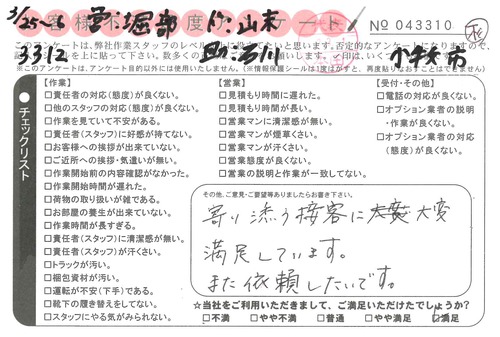 3/25-26 営:堀部 作:山本
お客様不満足度アンケート
№ 043310
このアンケートは、弊社作業スタッフのレベル
否定的なアンケートになりますので、
3312 助:石川 小牧市
※このアンケートは、アンケート目的以外には使用いたしません。(※情報保護シールは1度はがすと、再度貼りなおすことはできません)
チェックリスト
【作業】
□責任者の対応(態度)が良くない。
□他のスタッフの対応(態度)が良くない。
□作業を見ていて不安がある。
□責任者(スタッフ)に好感が持てない。
□お客様への挨拶が出来ていない。
□ご近所への挨拶・気遣いが無い。
□作業開始前の内容確認がなかった。
□作業開始時間が遅れた。
□荷物の取り扱いが雑である。
□お部屋の養生が出来ていない。
□作業時間が長すぎる。
□責任者(スタッフ)に清潔感が無い。
□責任者(スタッフ)が汗くさい。
□トラックが汚い。
□梱包資材が汚い。
□運転が不安(下手)である。
□靴下の履き替えをしてない。
□スタッフにやる気がみられない。
【営業】
□見積もり時間に遅れた。
□見積もり時間が長い。
□営業マンに清潔感が無い。
□営業マンが煙草くさい。
□営業マンが汗くさい。
□営業態度が良くない。
□営業の説明と作業が一致してない。
【受付・その他】
□電話の対応が良くない。
□オプション業者の説明・作業が良くない。
□オプション業者の対応(態度)が良くない。
その他、ご意見・ご要望等ありましたらお書き下さい。
寄り添う接客に大変
満足しています。
また依頼したいです。
☆当社をご利用いただきまして、ご満足いただけたでしょうか?
□不満 □やや不満 □普通 □やや満足 ☑満足